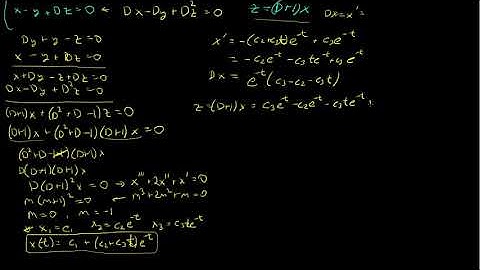 x - y + Dz = 0 ← Dx - Dy + D²z = 0
Dy + y - z = 0
x - y + Dz = 0
x + Dy - z + Dz = 0
Dx - Dy + D²z = 0
(D+1)x + (D²+D-1)z = 0
(D+1)x + (D²+D-1)(D+1)x = 0
(D²+D-1+1)(D+1)x
D(D+1)(D+1)x
D(D+1)²x = 0 → x''' + 2x'' + x' = 0
m(m+1)² = 0 ← m³ + 2m² + m = 0
m = 0, m = -1
x₁ = c₁ x₂ = c₂e⁻ᵗ x₃ = c₃te⁻ᵗ
x(t) = c₁ + (c₂ + c₃t)e⁻ᵗ
z = (D+1)x Dx = x' =
x' = -(c₂ + c₃t)e⁻ᵗ + c₃e⁻ᵗ
= -c₂e⁻ᵗ - c₃te⁻ᵗ + c₃e⁻ᵗ
Dx = e⁻ᵗ(c₃ - c₂ - c₃t)
z = (D+1)x = c₃e⁻ᵗ - c₂e⁻ᵗ - c₃te⁻ᵗ +